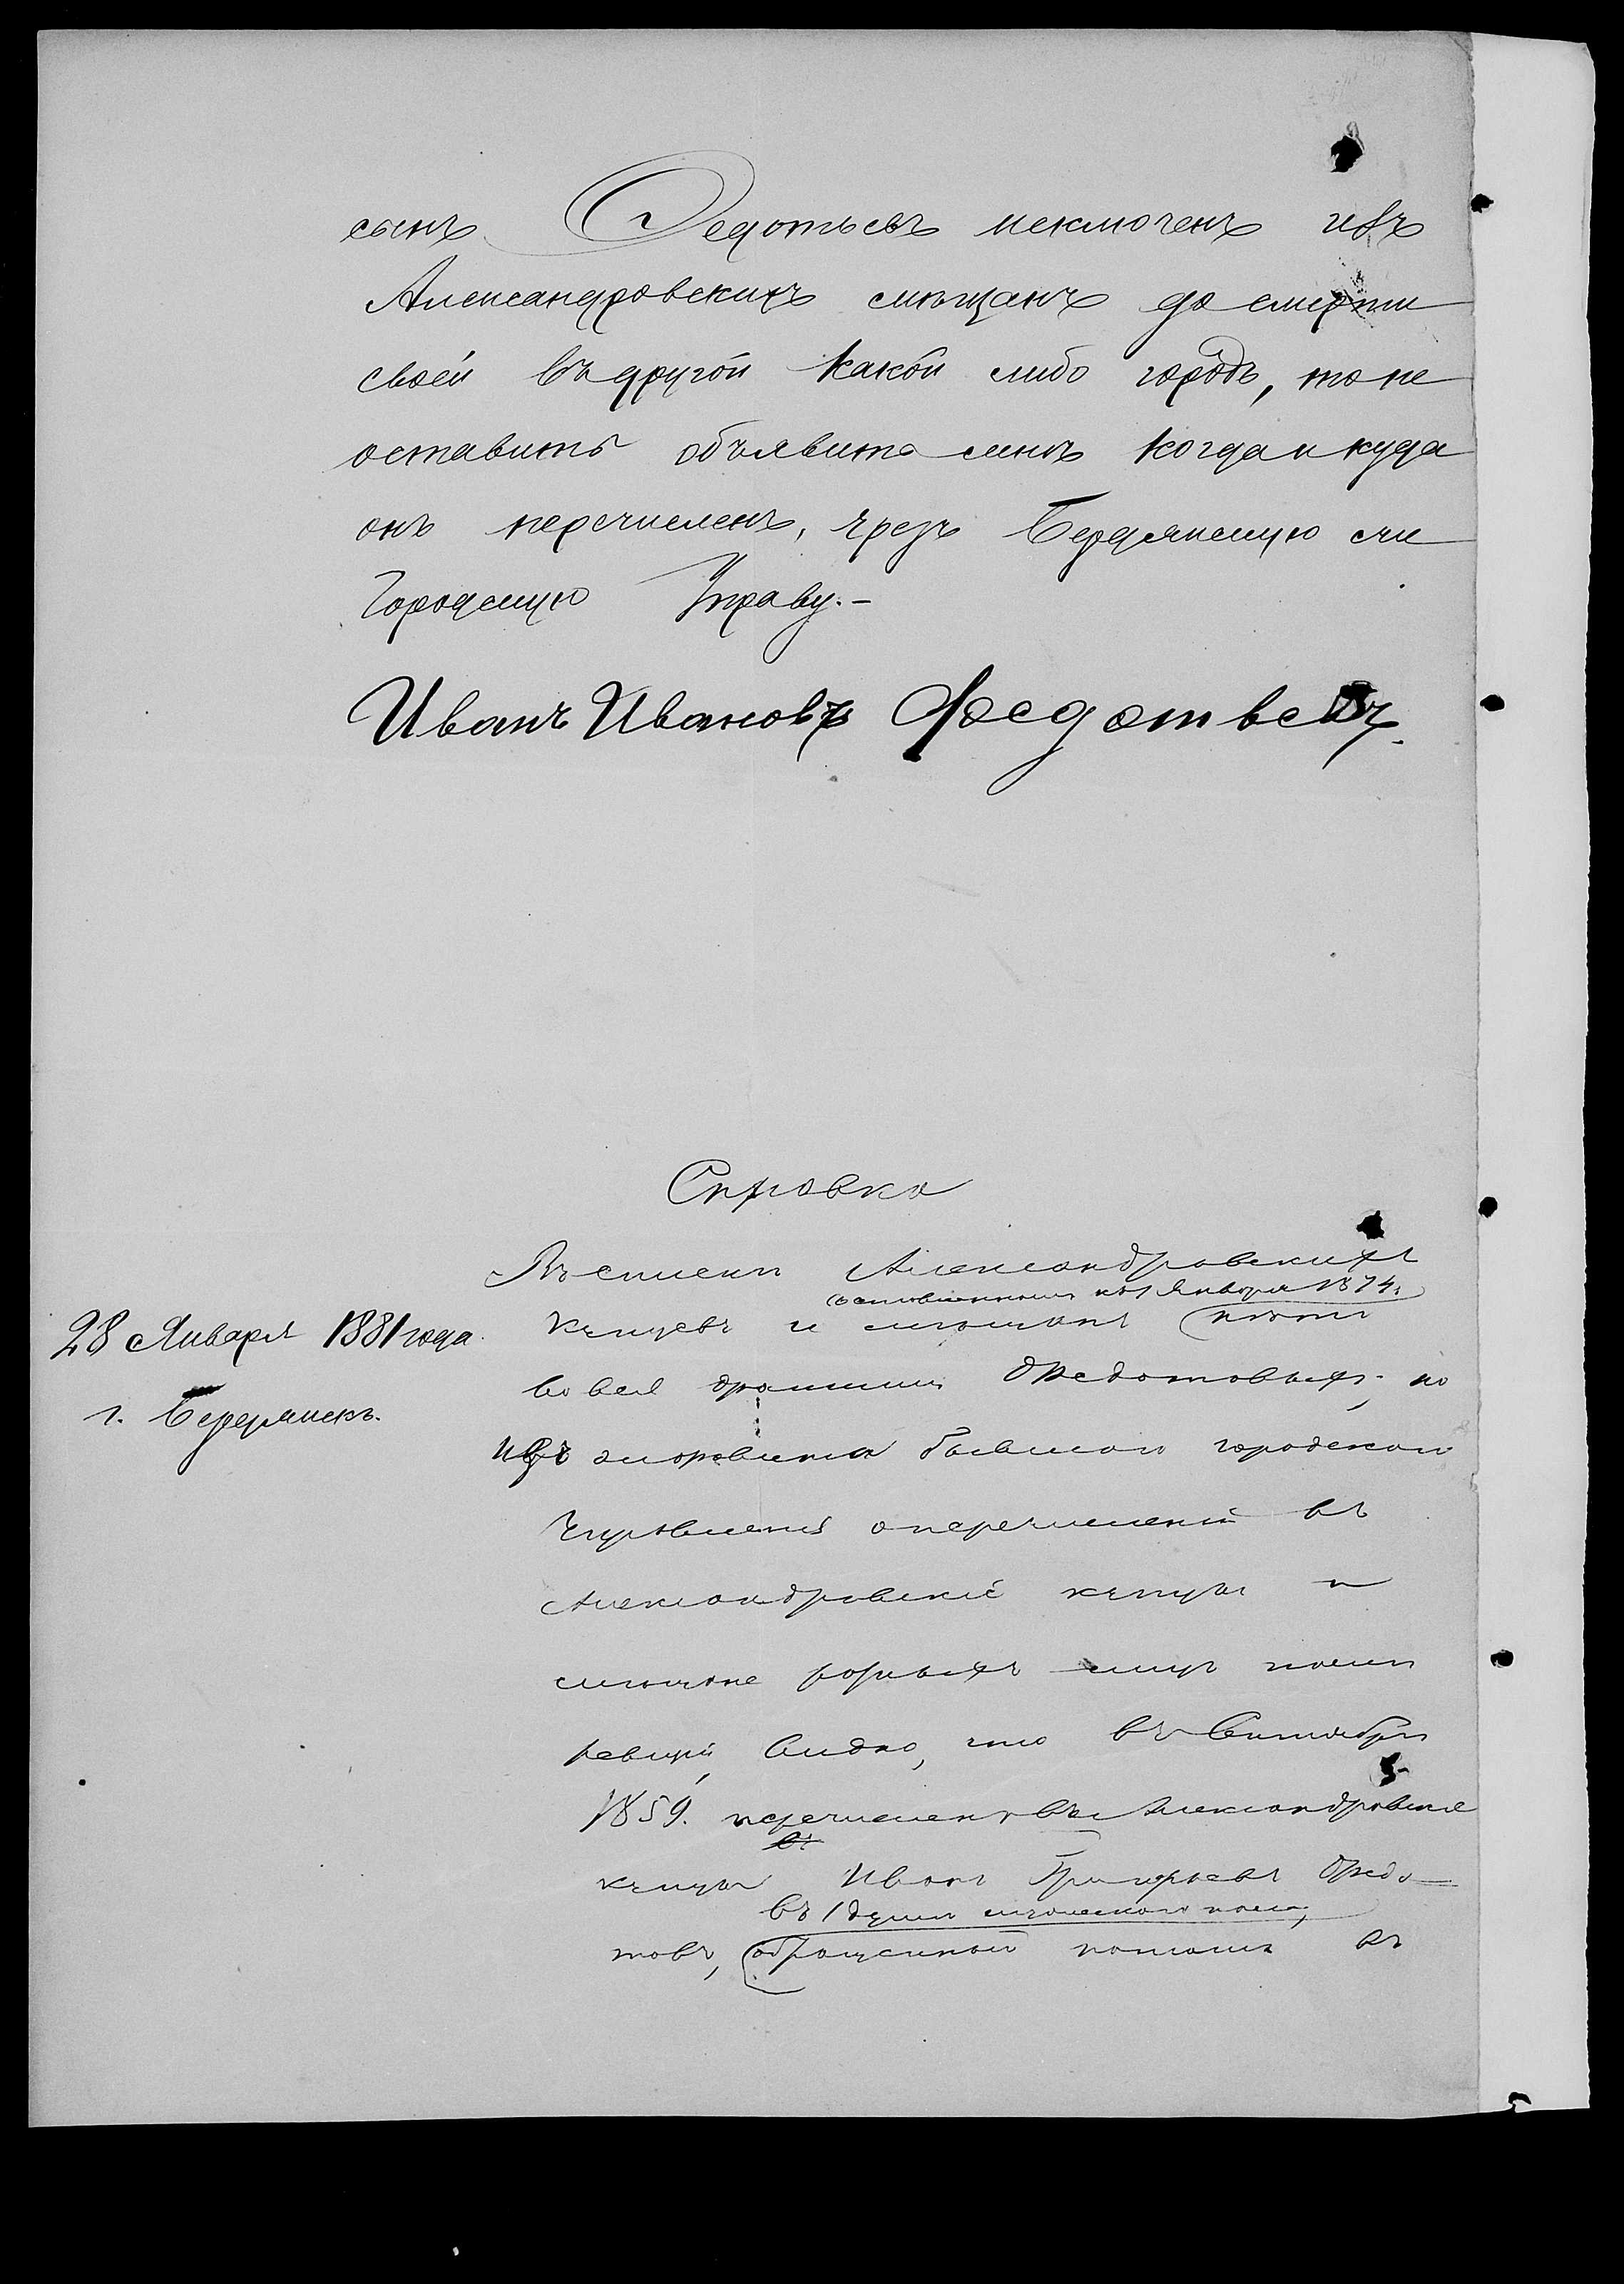 сынъ Федотьевъ исключенъ изъ
Александровскихъ мѣщанъ до смерти
своей въ другой какой либо городъ, то не
оставить объявить мнѣ когда и куда
онъ перечисленъ, чрезъ Бердянскую
Городскую Управу.-
Иванъ Ивановъ Федотьевъ.
Справка
Въ спискѣ Александровскихъ
составленномъ къ 1 Января 1874
28 Января 1881 года.
купцевъ и мѣщанъ
г. Бердянскъ.
Федотовыхъ, но
изъ бывшаго городскаго
Управленія о перечисленіи въ
Александровскіе купцы и
мѣщане разныхъ лицъ
ревизіи, видно, что въ Сентябрѣ
1859. перечисленъ въ Александровскіе
купцы Иванъ Григорьевъ Федо-
въ 1 души мужескаго пола,
товъ, въ